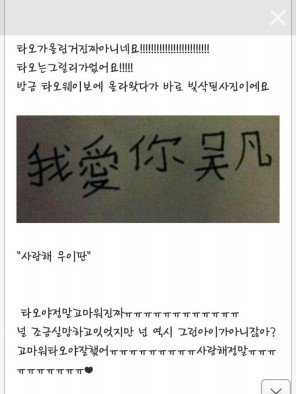 타오가올린거진짜아니네요!!!!!!!!!!!!!!!!!!!!!!!!!
타오는그럴리가없어요!!!!!
방금 타오웨이보에 올라왔다가 바로 빛삭된사진이에요
我愛你吴凡
"사랑해 우이판"
타오야정말고마워진짜ㅠㅠㅠㅠㅠㅠㅠㅠㅠㅠㅠㅠ
널 조금실망하고있었지만 넌 역시 그런아이가아니잖아?
고마워타오야잘했어ㅠㅠㅠㅠㅠㅠㅠㅠㅠ사랑해정말ㅠㅠㅠ
ㅠㅠㅠㅠㅠㅠㅠ♥